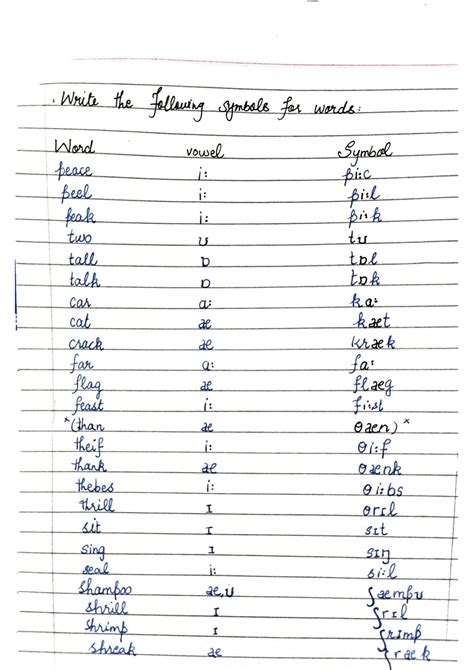 . Write the following symbols for words:
Word vowel Symbol
peace i: pi:c
peel i: pi:l
peak i: pi:k
two ʊ tʊ
tall ɒ tɒl
talk ɒ tɒk
car ɑ: kɑ:
cat æ kæt
crack æ kræk
far ɑ: fɑ:
flag æ flæg
feast i: fi:st
*(than æ θæn)*
theif i: θi:f
thank æ θænk
thebes i: θi:bs
thrill ɪ θrɪl
sit ɪ sɪt
sing ɪ sɪŋ
seal i: si:l
shampoo æ,ʊ ʃæmpʊ
shrill ɪ ʃrɪl
shrimp ɪ ʃrɪmp
shreak æ ʃræk